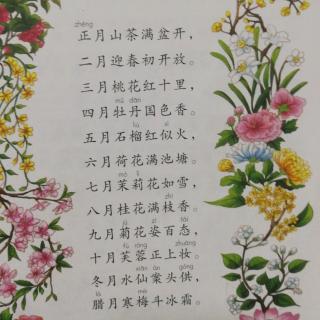 zhēng
正月山茶满盆开，
二月迎春初开放。
三月桃花红十里，
mǔ dān
四月牡丹国色香。
liú sì
五月石榴红似火，
六月荷花满池塘。
mò lì
七月茉莉花如雪，
zhī
八月桂花满枝香。
jú zī tài
九月菊花姿百态，
fú róng zhuāng
十月芙蓉正上妆。
xiān àn gòng
冬月水仙案头供，
là
腊月寒梅斗冰霜。